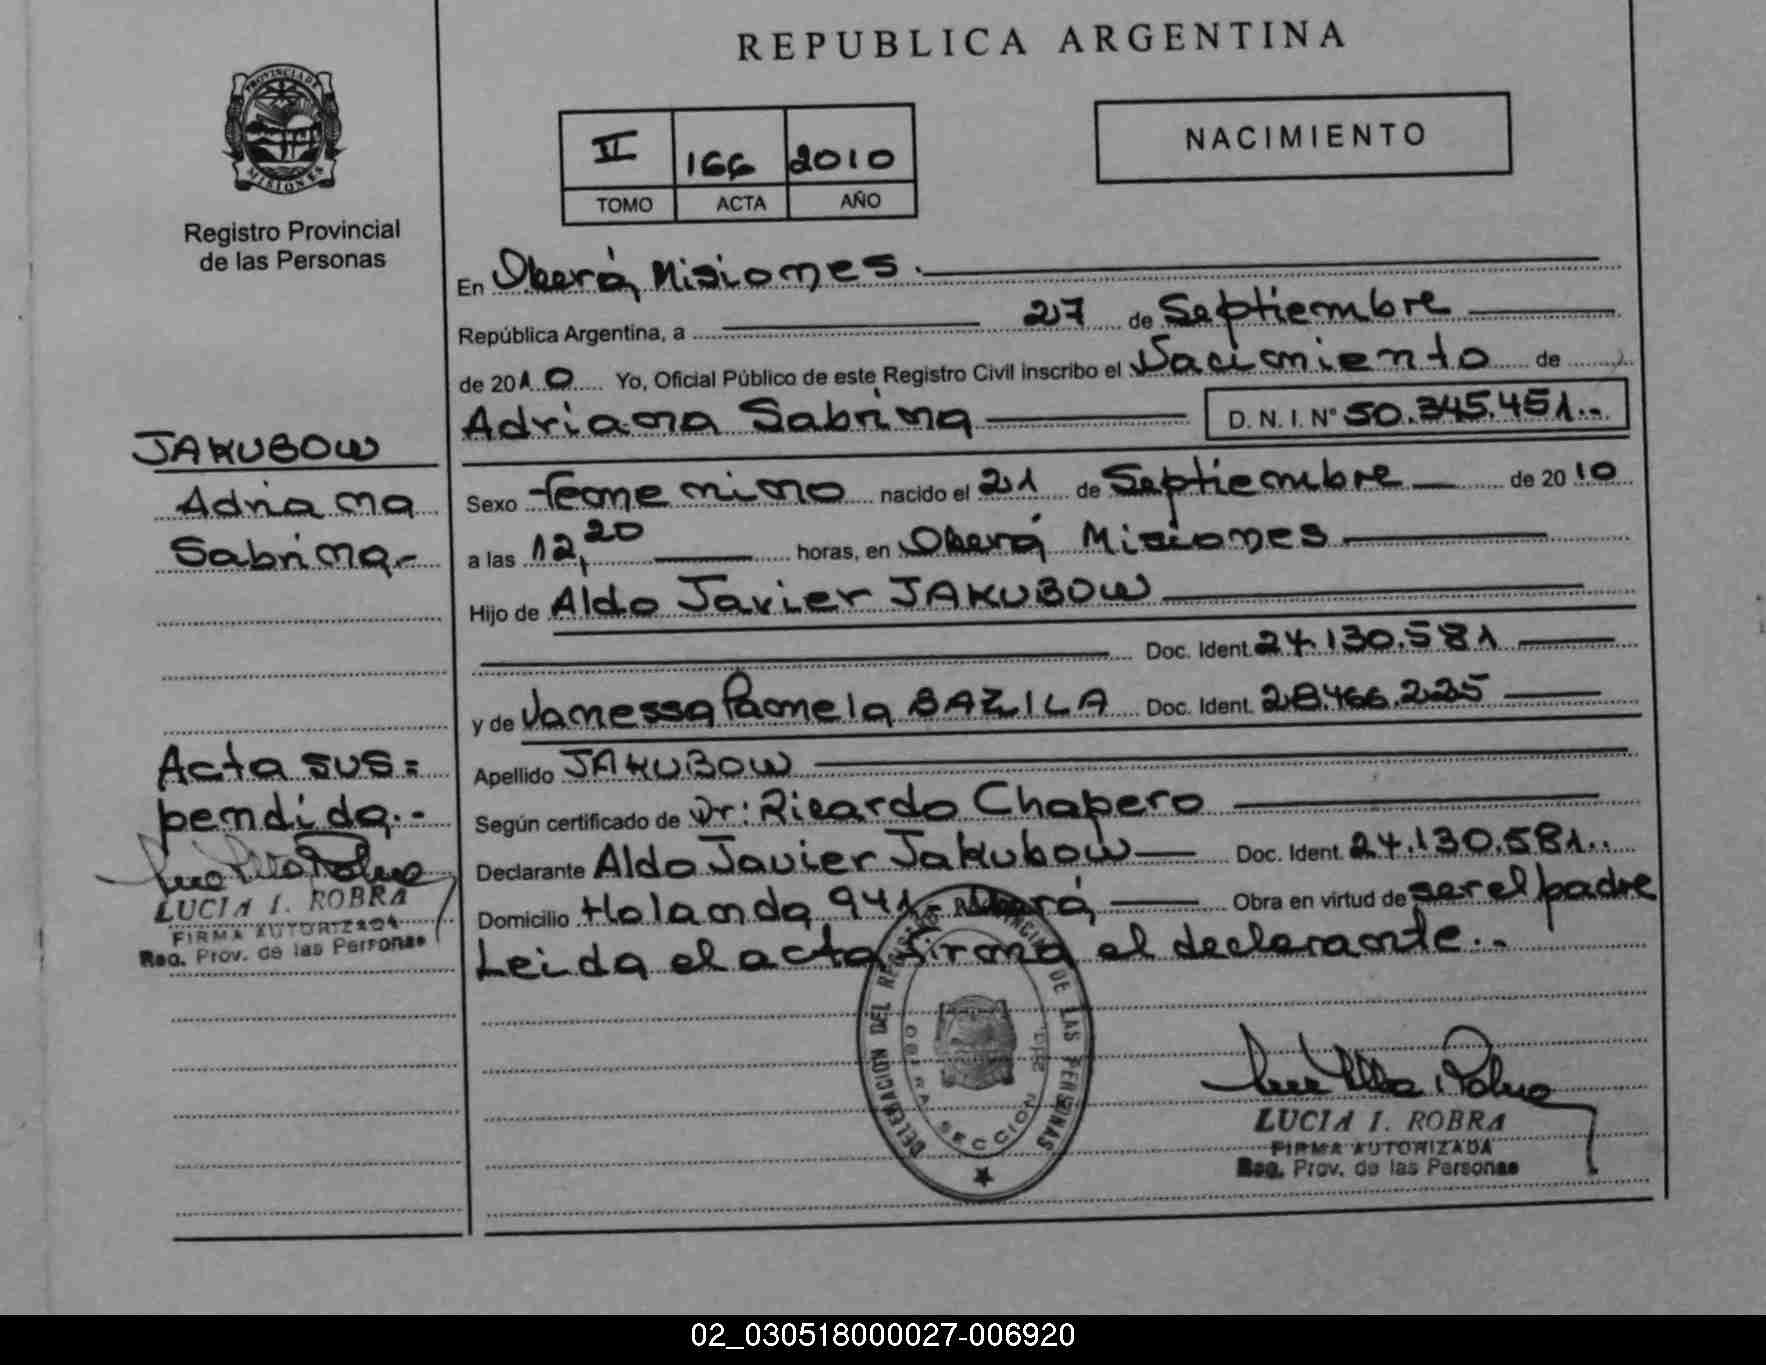 REPUBLICA ARGENTINA
PROVINCIA DE
MISIONES
Registro Provincial
de las Personas
II 166 2010
TOMO ACTA AÑO
NACIMIENTO
En Oberá, Misiones.
República Argentina, a 27 de Septiembre
de 2010 Yo, Oficial Público de este Registro Civil inscribo el Nacimiento de
Adriana Sabrina D. N. I. N° 50.345.451.-
JAKUBOW
Adriana
Sabrina.-
Sexo femenino nacido el 21 de Septiembre de 2010
a las 12,20 horas, en Oberá Misiones
Hijo de Aldo Javier JAKUBOW
Doc. Ident. 24.130.581
y de Vanessa Pamela BAZILA Doc. Ident. 28.466.225
Apellido JAKUBOW
Según certificado de Dr: Ricardo Chapero
Declarante Aldo Javier Jakubow Doc. Ident. 24.130.581..
Domicilio Holanda 941- Oberá Obra en virtud de ser el padre
Leida el acta firma el declarante..
Acta sus=
pendida.-
LUCIA I. ROBRA
FIRMA AUTORIZADA
Reg. Prov. de las Personas
DELEGACION DEL REGISTRO PROVINCIAL DE LAS PERSONAS
OBERA SECCION
LUCIA I. ROBRA
FIRMA AUTORIZADA
Reg. Prov. de las Personas
02_030518000027-006920